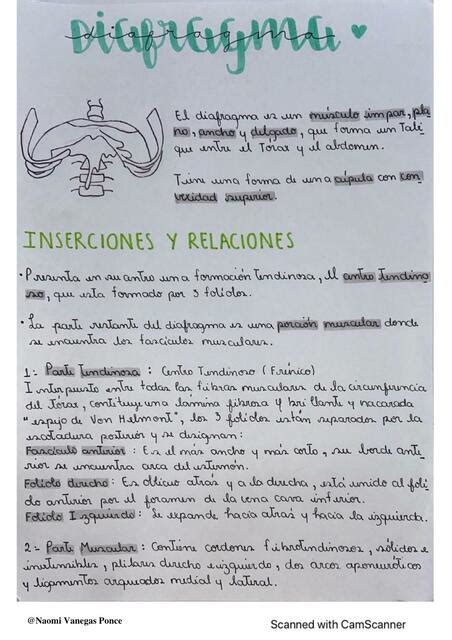 Diafragma
diafragma
El diafragma es un músculo impar, pla
no, ancho y delgado, que forma un Tabi
que entre el Tórax y el abdomen.
Tiene una forma de una cúpula con con
vexidad superior.
INSERCIONES Y RELACIONES
· Presenta en su centro una formación tendinosa, el centro Tendino
so, que esta formado por 3 foliolos.
· La parte restante del diafragma es una porción muscular donde
se encuentra los fascículos musculares.
1:- Parte Tendinosa : Centro Tendinoso (Frénico)
Interpuesto entre todas las fibras musculares de la circunferencia
del Tórax, contituye una lámina fibrosa y brillante y nacarada
"espejo de Van Helmont", los 3 foliolos están separados por la
escotadura posterior y se designan:
Fascículo anterior : Es el más ancho y más corto, su borde ante
rior se encuentra cerca del esternón.
Foliolo derecho : Es oblicuo atrás y a la derecha, está unido al folí
olo anterior por el foramen de la vena cava inferior.
Foliolo Izquierdo : Se expande hacia atrás y hacia la izquierda.
2:- Parte Muscular : Contiene cordones fibrotendinosos, sólidos e
inextensibles, pilares derecho e izquierdo, dos arcos aponeuróticos
y ligamentos arqueados medial y lateral.
@Naomi Vanegas Ponce
Scanned with CamScanner